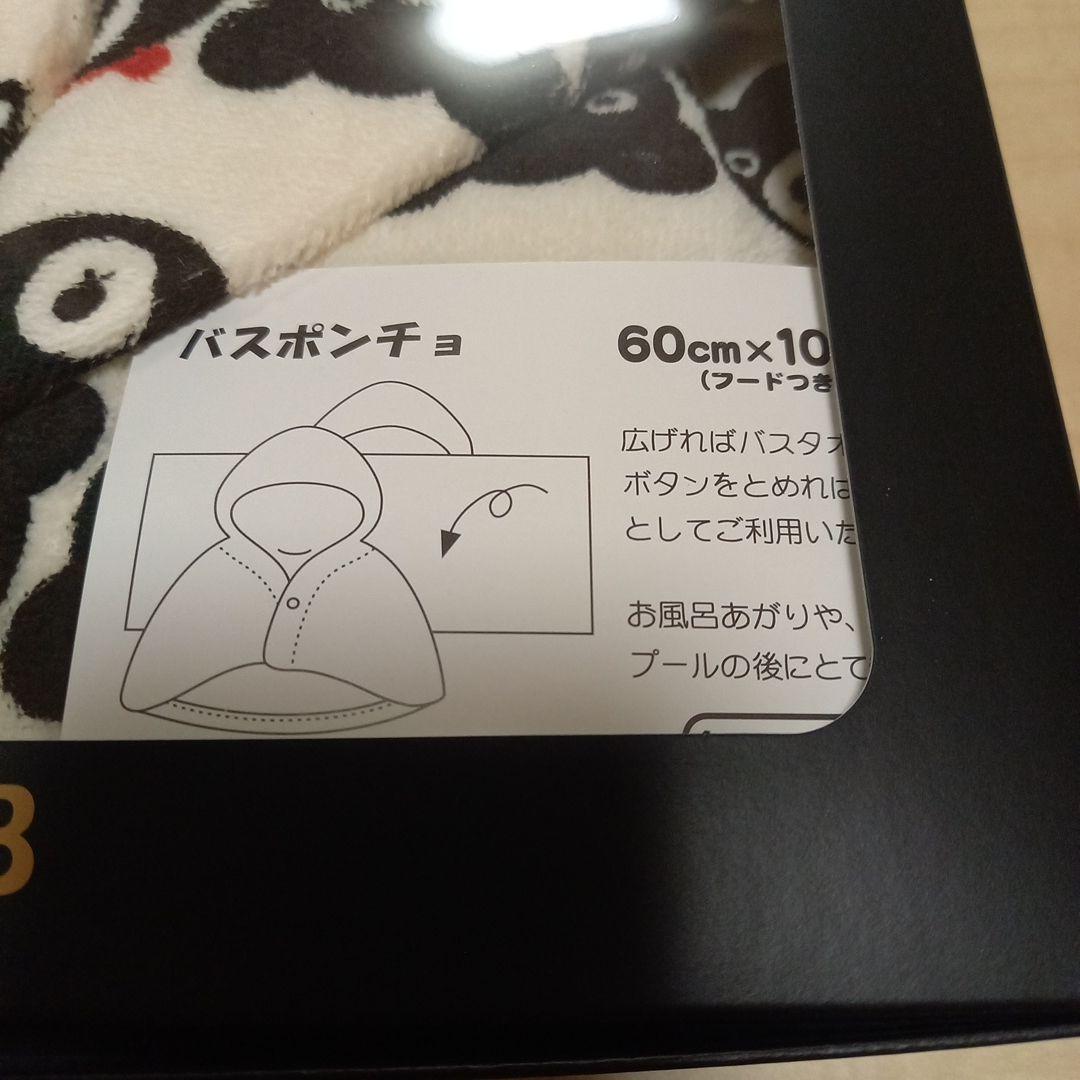 バスポンチョ
60cm×10
(フードつき
広げればバスタオ
ボタンをとめれば
としてご利用いた
お風呂あがりや、
プールの後にとて
3